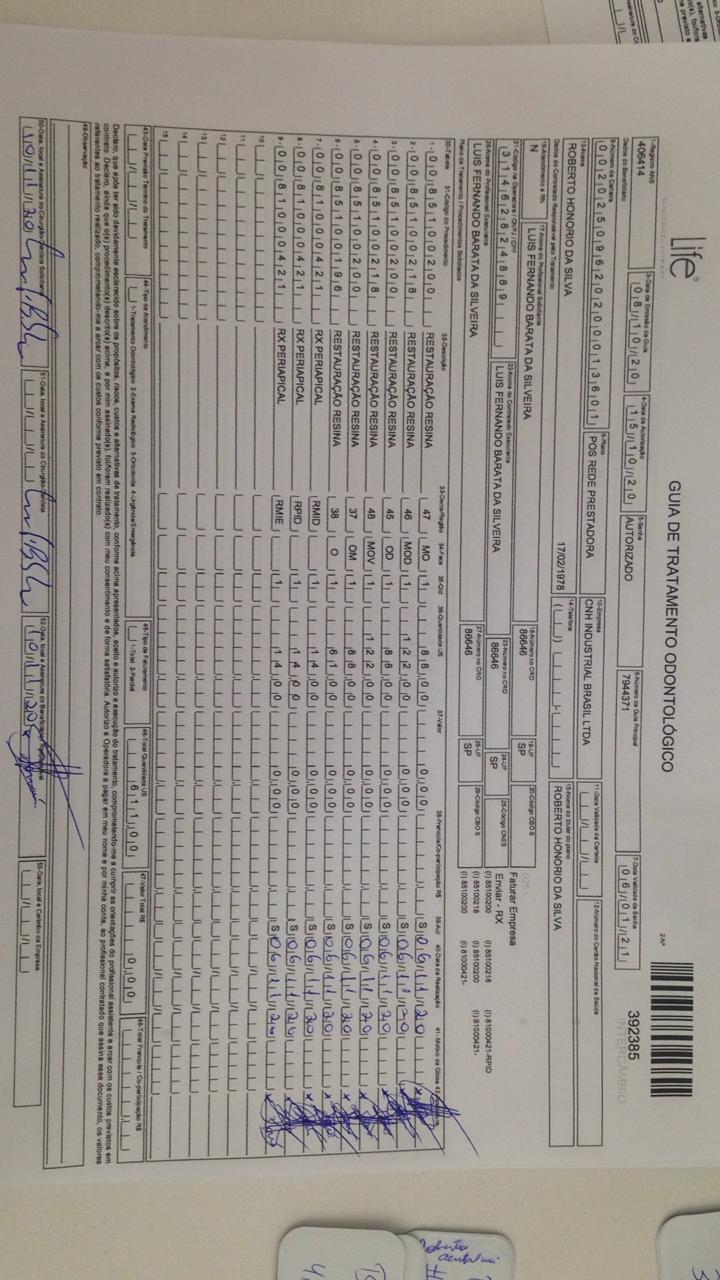 Life
GUIA DE TRATAMENTO ODONTOLÓGICO
2-Nº
392385
INTERCÂMBIO
1-Registro ANS
406414
3-Data de Emissão da Guia
08/10/20
4-Data de Autorização
15/10/20
5-Senha
AUTORIZADO
6-Número da Guia Principal
7944371
7-Data Validade da Senha
06/01/21
Dados do Beneficiário
8-Número da Carteira
00202509620200013601
9-Plano
POS REDE PRESTADORA
10-Empresa
CNH INDUSTRIAL BRASIL LTDA
11-Data Validade da Carteira
12-Número do Cartão Nacional de Saúde
13-Nome
ROBERTO HONORIO DA SILVA
17/02/1978
14-Telefone
15-Nome do titular do plano
ROBERTO HONORIO DA SILVA
Dados do Contratado Responsável pelo Tratamento
16-Atendimento a RN
N
17-Nome do Profissional Solicitante
LUIS FERNANDO BARATA DA SILVEIRA
18-Número no CRO
86646
19-UF
SP
20-Código CBO S
025
21-Código na Operadora / CNPJ / CPF
31462824889
22-Nome do Contratado Executante
LUIS FERNANDO BARATA DA SILVEIRA
23-Número no CRO
86646
24-UF
SP
25-Código CNES
26-Nome do Profissional Executante
LUIS FERNANDO BARATA DA SILVEIRA
27-Número no CRO
86646
28-UF
SP
29-Código CBO S
Faturar Empresa
Enviar - RX
(I) 85100200 (I) 85100218 (I) 81000421-RPID
(I) 85100218 (I) 85100200 (I) 81000421-
(I) 85100200 (I) 81000421-
Plano de Tratamento / Procedimentos Solicitados
30-Tabela 31-Código do Procedimento 32-Descrição 33-Dente/Região 34-Face 35-Qtd 36-Quantidade US 37-Valor 38-Franquia/Co-participação R$ 39-Aut 40-Data de Realização 41-Motivo da Glosa
1- 00 85100200 RESTAURAÇÃO RESINA 47 MO 1 88,00 0,00 S 06/11/20
2- 00 85100218 RESTAURAÇÃO RESINA 46 MOD 1 122,00 0,00 S 06/11/20
3- 00 85100200 RESTAURAÇÃO RESINA 45 OD 1 88,00 0,00 S 06/11/20
4- 00 85100218 RESTAURAÇÃO RESINA 48 MOV 1 122,00 0,00 S 06/11/20
5- 00 85100200 RESTAURAÇÃO RESINA 37 OM 1 88,00 0,00 S 06/11/20
6- 00 85100196 RESTAURAÇÃO RESINA 38 O 1 61,00 0,00 S 06/11/20
7- 00 81000421 RX PERIAPICAL RMID 1 14,00 0,00 S 06/11/20
8- 00 81000421 RX PERIAPICAL RPID 1 14,00 0,00 S 06/11/20
9- 00 81000421 RX PERIAPICAL RMIE 1 14,00 0,00 S 06/11/20
10
11
12
13
14
15
43-Data Prevista Término do Tratamento
44-Tipo de Atendimento
1-Tratamento Odontológico 2-Exame Radiológico 3-Ortodontia 4-Urgência/Emergência
45-Tipo de Faturamento
1-Total 2-Parcial
46-Total Quantidade US
611,00
47-Valor Total R$
0,00
48-Total Franquia / Co-participação R$
Declaro, que após ter sido devidamente esclarecido sobre os propósitos, riscos, custos e alternativas de tratamento, conforme acima apresentados, aceito e autorizo a execução do tratamento, comprometendo-me a cumprir as orientações do profissional assistente e arcar com os custos previstos em
contrato. Declaro, ainda que o(s) procedimento(s) descrito(s) acima, e por mim assinado(s), foi/foram realizado(s) com meu consentimento e de forma satisfatória. Autorizo a Operadora a pagar em meu nome e por minha conta, ao profissional contratado que assina esse documento, os valores
referentes ao tratamento realizado, comprometendo-me a arcar com os custos conforme previsto em contrato.
49-Observação
50-Data, local e Assinatura do Cirurgião-Dentista Solicitante
10/11/20
51-Data, local e Assinatura do Cirurgião-Dentista
52-Data, local e Assinatura do Beneficiário
10/11/20
53-Data, local e Carimbo da Empresa
Roberto